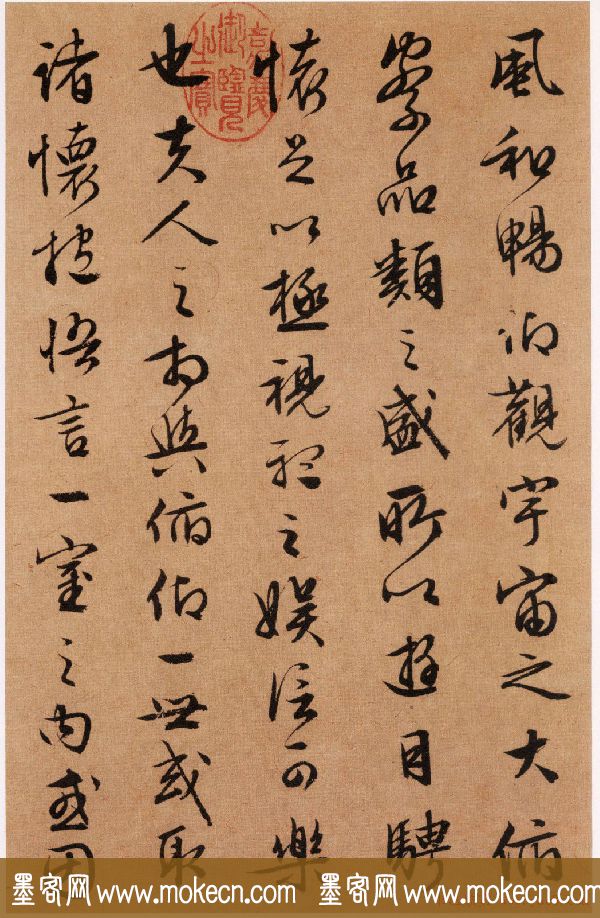 風和暢仰觀宇宙之大俯
察品類之盛所以遊目騁
懷足以極視聽之娛信可樂
也夫人之相與俯仰一世或取
諸懷抱悟言一室之內或因
嘉慶御覽之寶
墨客网 www.mokecn.com 墨客网 www.mokecn.com